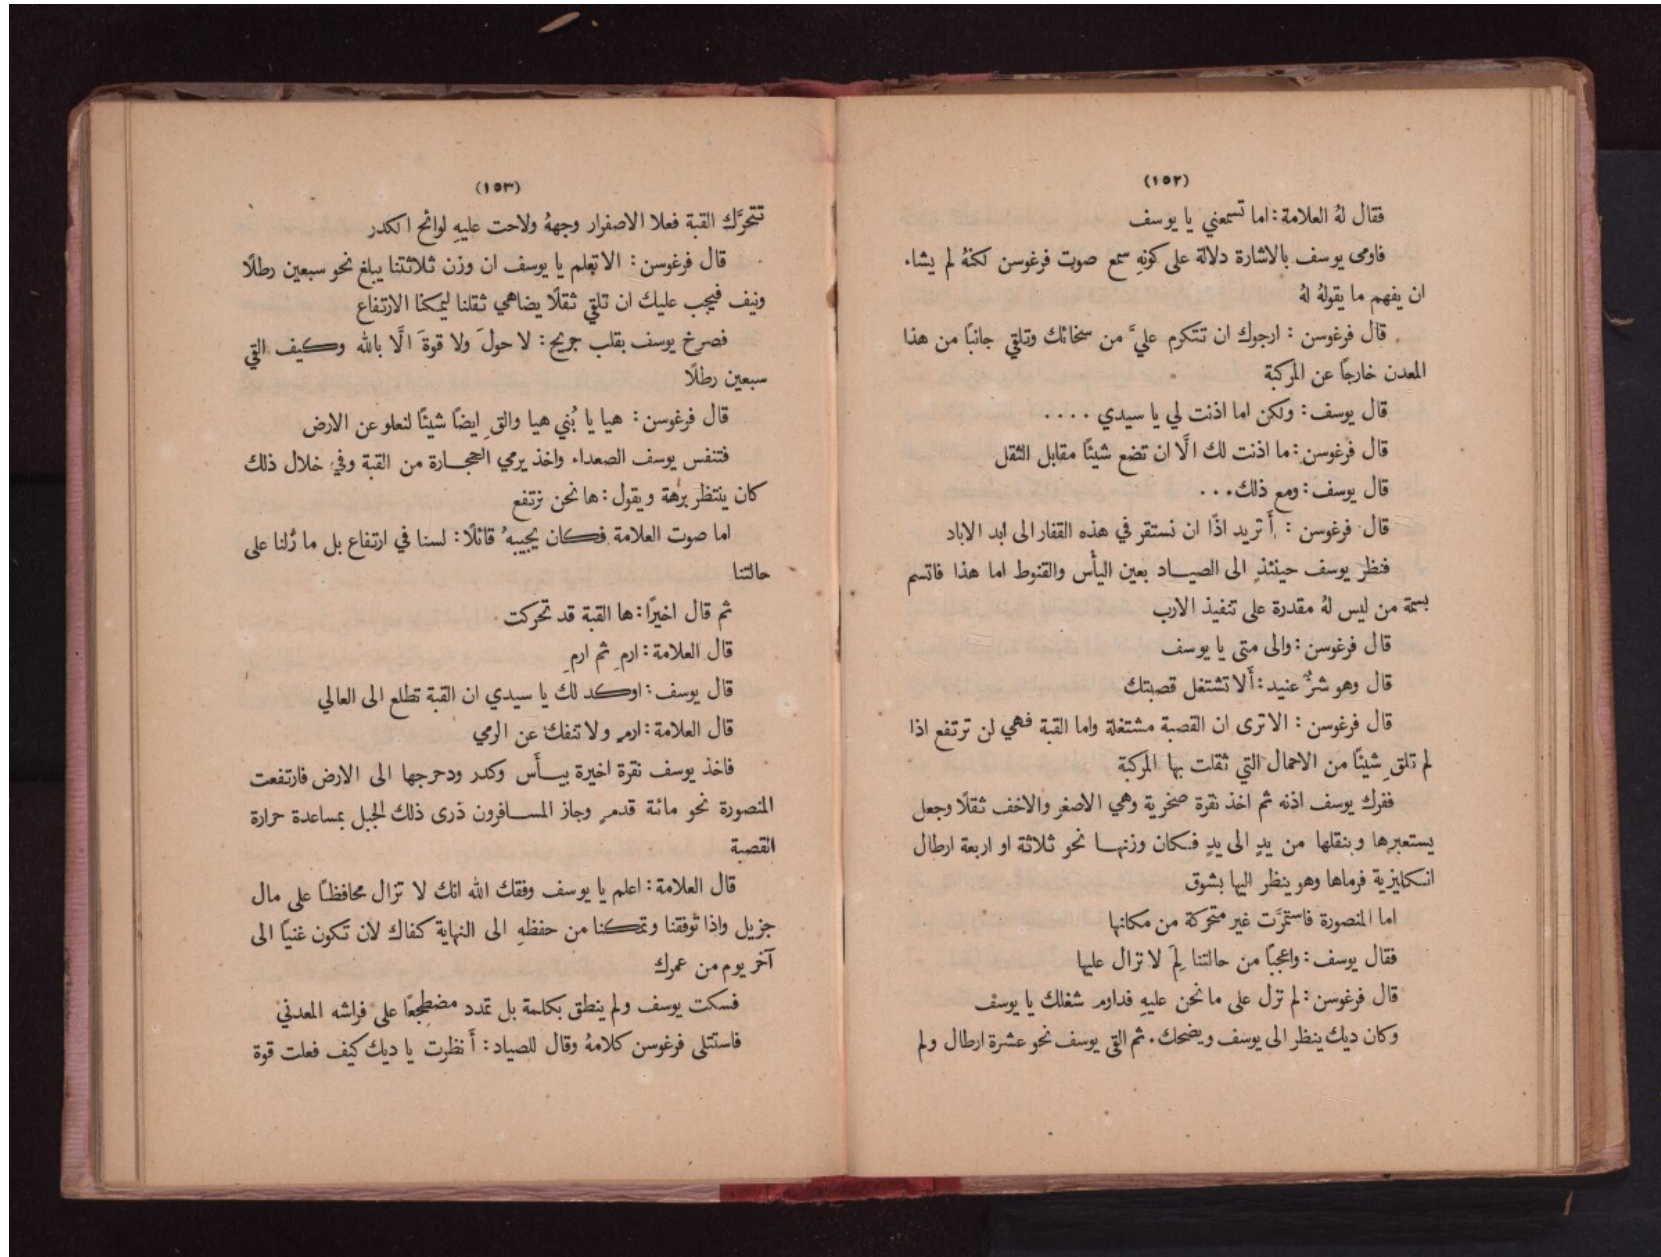 (١٥٢)
فقال لهُ العلامة: اما تسمعني يا يوسف
فاومى يوسف بالاشارة دلالة على كونهِ سمع صوت فرغوسن لكنهُ لم يشاء
ان يفهم ما يقولهُ لهُ
قال فرغوسن: ارجوك ان تتكرم عليَّ من سخائك وتلقي جانبًا من هذا
المعدن خارجًا عن المركبة
قال يوسف: ولكن اما اذنت لي يا سيدي ....
قال فرغوسن: ما اذنت لك الَّا ان تضع شيئًا مقابل الثقل
قال يوسف: ومع ذلك...
قال فرغوسن: أَتريد اذًا ان نستقر في هذه القفار الى ابد الاباد
فنظر يوسف حينئذٍ الى الصياد بعين اليأس والقنوط اما هذا فاتسم
بسمة من ليس لهُ مقدرة على تنفيذ الارب
قال فرغوسن: والى متى يا يوسف
قال وهو شرٌّ عنيد: أَلا تشتغل قصبتك
قال فرغوسن: الا ترى ان القصبة مشتغلة واما القبة فهي لن ترتفع اذا
لم تلقِ شيئًا من الاحمال التي ثقلت بها المركبة
ففرك يوسف اذنه ثم اخذ نقرة صخرية وهي الاصغر والاخف ثقلًا وجعل
يستعبرها وينقلها من يدٍ الى يدٍ فكان وزنها نحو ثلاثة او اربعة ارطال
انكليزية فرماها وهو ينظر اليها بشوق
اما المنصورة فاستمرَّت غير متحركة من مكانها
فقال يوسف: واعجبًا من حالتنا لِمَ لا تزال عليها
قال فرغوسن: لم نزل على ما نحن عليهِ فداوم شغلك يا يوسف
وكان ديك ينظر الى يوسف ويضحك. ثم القى يوسف نحو عشرة ارطال ولم
(١٥٣)
تتحرَّك القبة فعلا الاصفرار وجههُ ولاحت عليهِ لوائح الكدر
قال فرغوسن: الا تعلم يا يوسف ان وزن ثلاثتنا يبلغ نحو سبعين رطلًا
ونيف فيجب عليك ان تلقي ثقلًا يضاهي ثقلنا ليمكنا الارتفاع
فصرخ يوسف بقلب جريح: لا حولَ ولا قوةَ الَّا بالله وكيف القي
سبعين رطلًا
قال فرغوسن: هيا يا بُني هيا والقِ ايضًا شيئًا لنعلو عن الارض
فتنفس يوسف الصعداء واخذ يرمي الحجارة من القبة وفي خلال ذلك
كان ينتظر برهة ويقول: ها نحن نرتفع
اما صوت العلامة فكان يجيبهُ قائلًا: لسنا في ارتفاع بل ما زلنا على
حالتنا
ثم قال اخيرًا: ها القبة قد تحركت
قال العلامة: ارمِ ثم ارمِ
قال يوسف: اوكد لك يا سيدي ان القبة تطلع الى العالي
قال العلامة: ارمِ ولا تنفك عن الرمي
فاخذ يوسف نقرة اخيرة بيأَس وكدر ودحرجها الى الارض فارتفعت
المنصورة نحو مائة قدمٍ وجاز المسافرون ذرى ذلك الجبل بمساعدة حرارة
القصبة
قال العلامة: اعلم يا يوسف وفقك الله انك لا تزال محافظًا على مال
جزيل واذا توفقنا وتمكنا من حفظهِ الى النهاية كفاك لان تكون غنيًا الى
آخر يوم من عمرك
فسكت يوسف ولم ينطق بكلمة بل تمدد مضطجعًا على فراشه المعدني
فاستتلى فرغوسن كلامهُ وقال للصياد: أَنظرت يا ديك كيف فعلت قوة